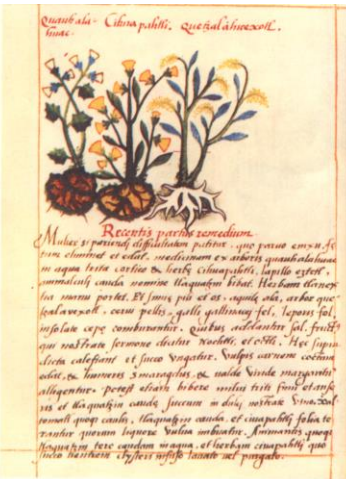 Quauhala- Cihuapahtli. Quetzalhuexotl.
huac.
Recentis partus remedium
Mulier si pariendi difficultatem patitur, quo parvo enixu fe
tum eliminet et edat, medicinam ex arboris quauhalahuac
in aqua trito cortice & herba cihuapahtli, lapillo eztetl,
animalculi cauda nomine tlaquatzin bibat. Herbam tlanex
tia manu portet. Et simiae pili et os, aquilae ala, arbor que
tzalhuexotl, cerui pellis, galli gallinacei fel, leporis fel,
insolatae cepe comburentur. Quibus addantur sal, fructus
qui nostrate sermone dicitur nochtli, et octli. Hec supra
dicta calefiant et succo ungatur. Vulpis carnem coctam
edat, & humeris smaragdus & valde viride margaritum
alligentur. potest etiam bibere milui triti fimi et anse
ris et tlaquatzin caudae succum in dulci nostrate vino. Xal
tomatl quoque caulis, tlaquatzin cauda et cihuapahtli folia te
rantur quorum liquore vulva imbuatur. Animantis quoque
tlaquatzin teres caudam in aqua, et herbam cihuapahtli quo
succo ventrem clysteri infuso lavato vel purgato.